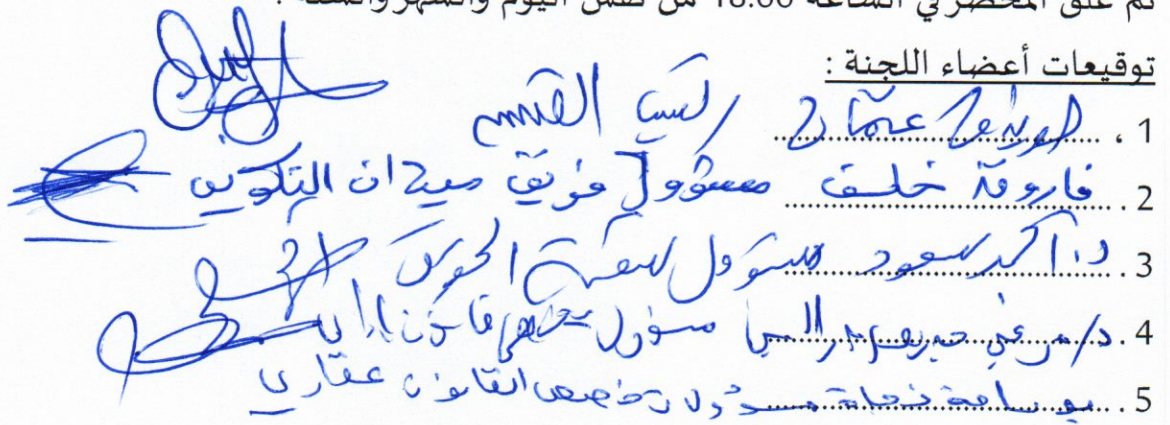 تم غلق المحضر في الساعة 16.00 من نفس اليوم والشهر والسنة .
توقيعات أعضاء اللجنة :
1 . عثمان رئيس القسم
2 . فاروق خلف مسؤول فريق ميدان التكوين
3 . د. أحمد سعود مسؤول شعبة الحقوق
4 . د/ مسؤول تخصص قانون إداري
5 . نجاة مسؤولة تخصص القانون عقاري